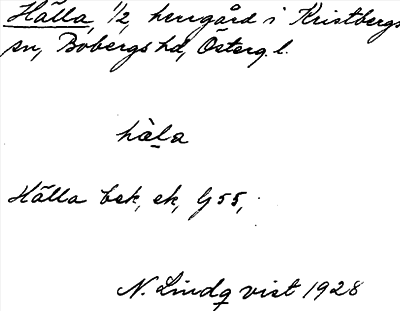 Hälla, 1/2, herrgård i Kristbergs
sn, Bobergs hd, Österg. l.
hàla
Hälla bek, ek, G 55,
N. Lindqvist 1928